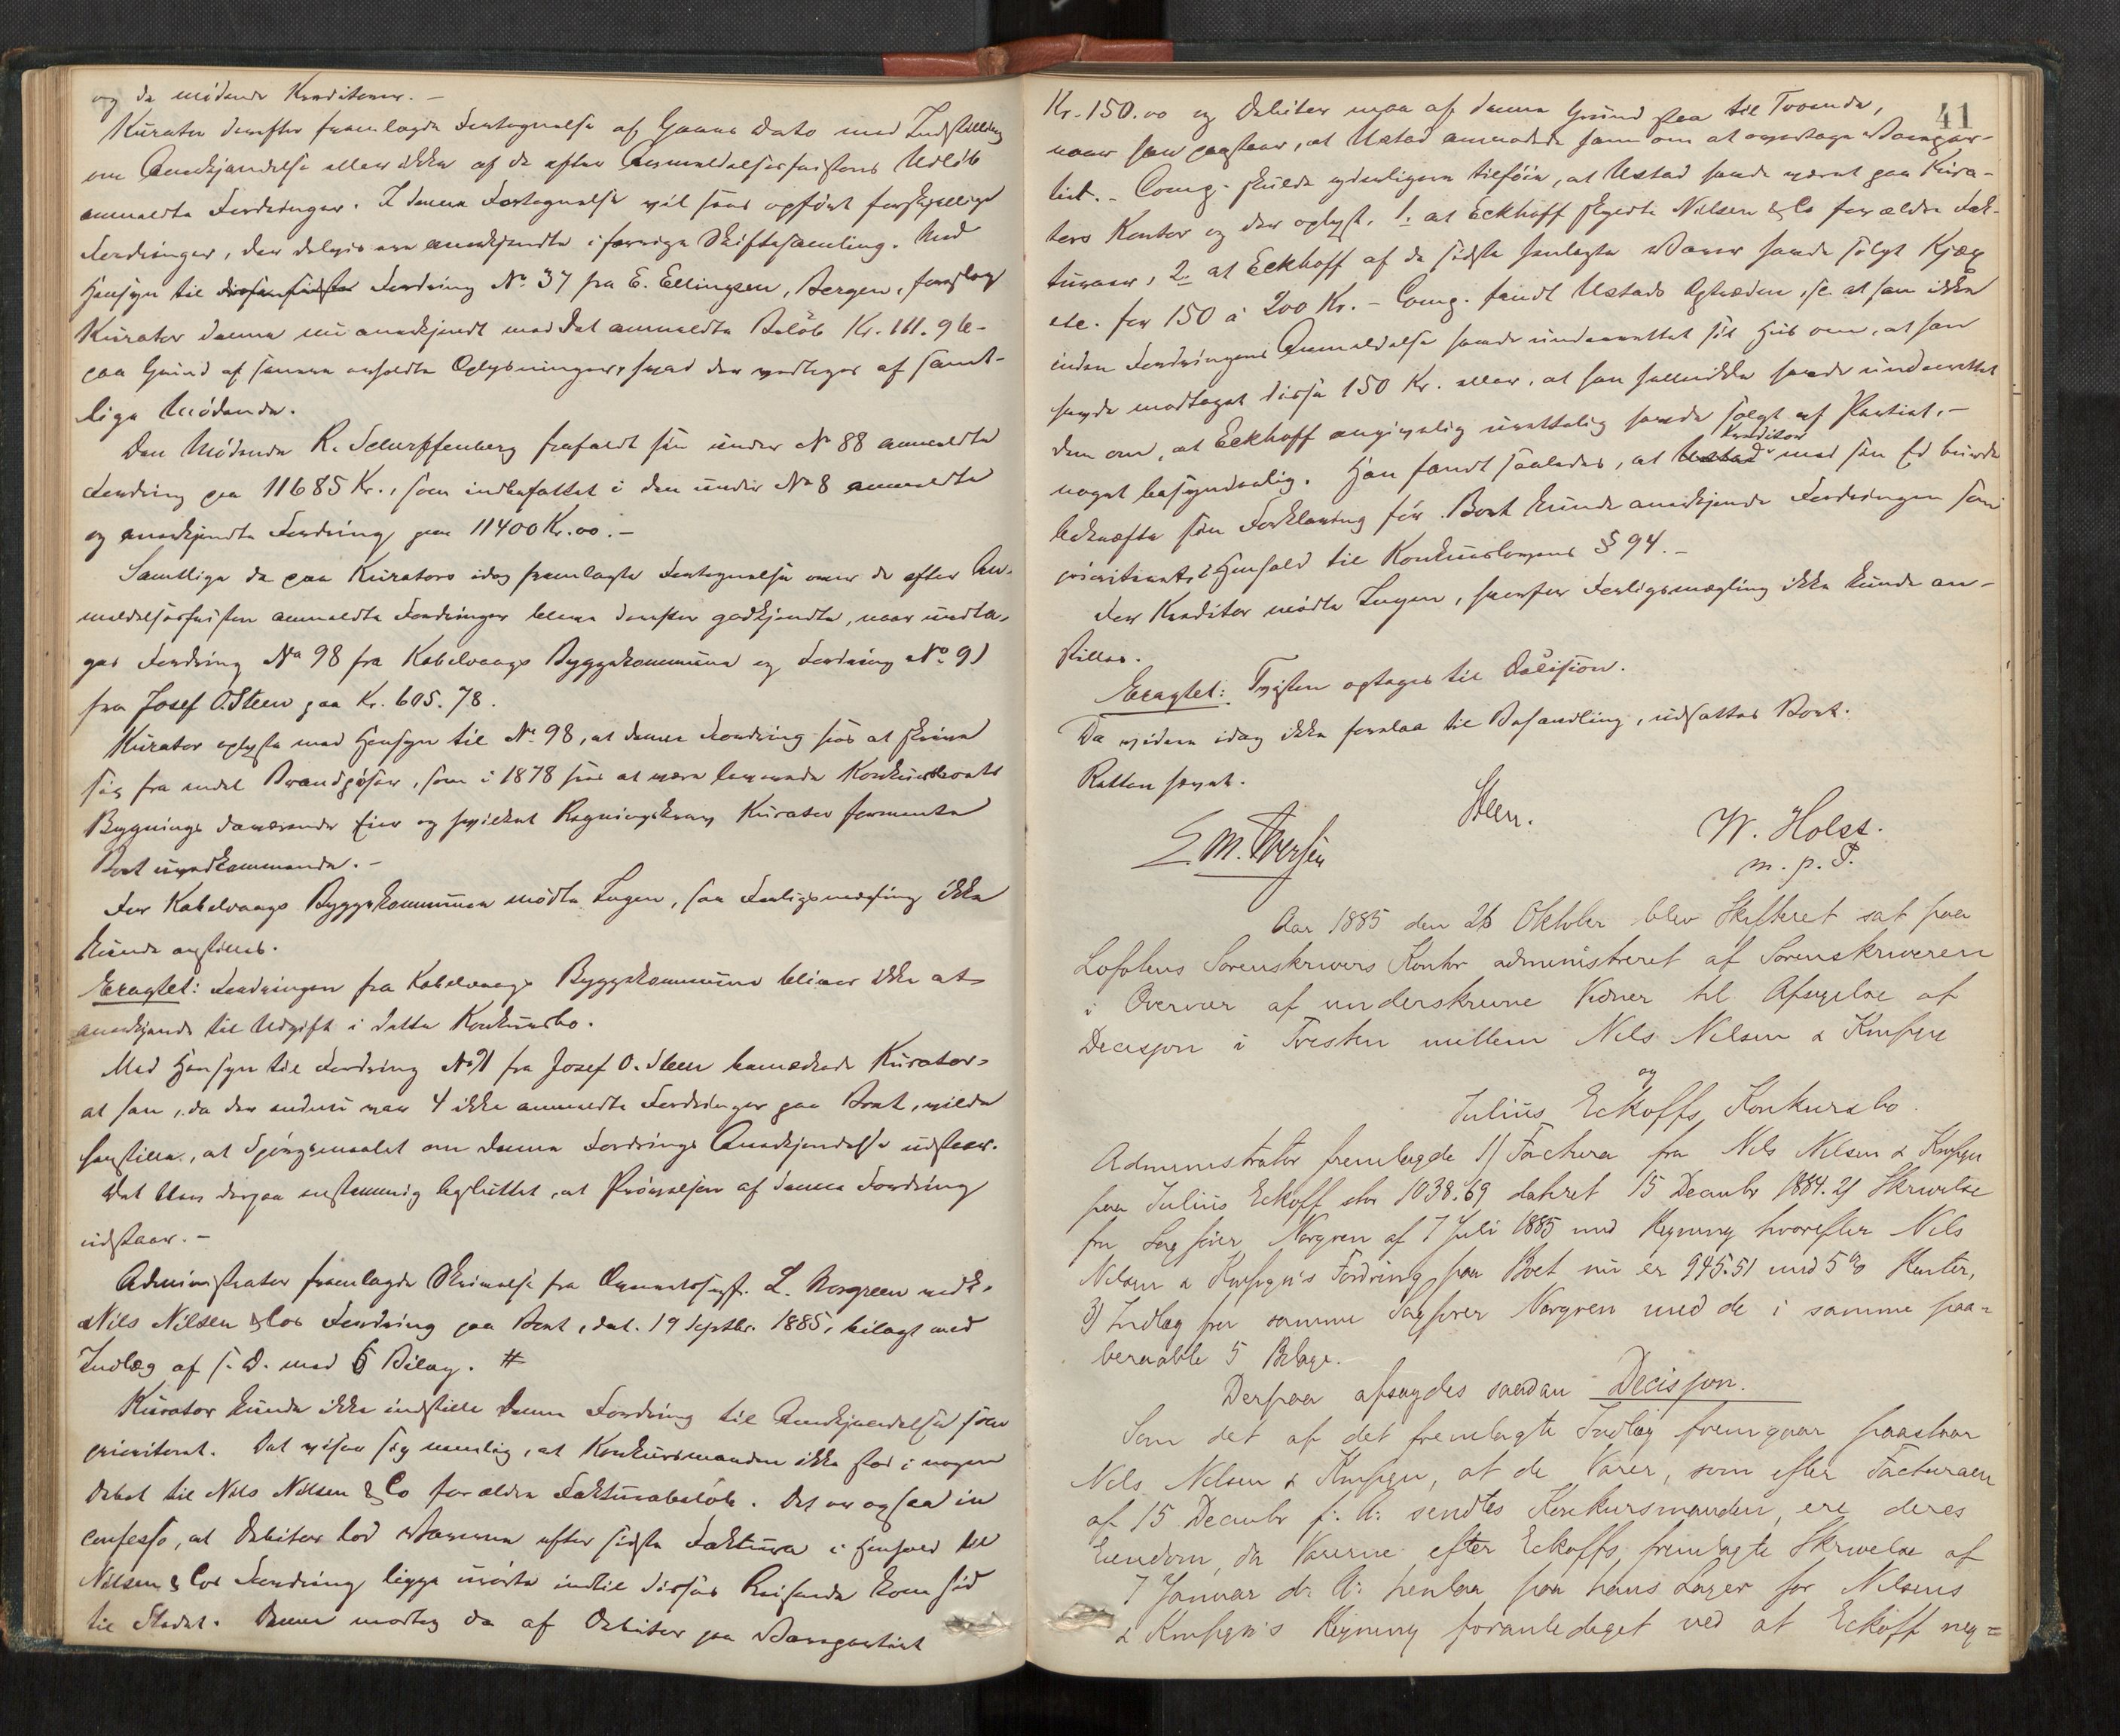 og de mødende Kreditorer. –
Kurator derefter fremlagde Fortegnelse af Gaars Dato med Indstilling
om Anerkjendelse eller ikke af de efter Anmeldelsesfristens Udløb
anmeldte Fordringer. I denne Fortegnelse vil sees opført forskjellige
Fordringer, der delvis ere anerkjendte i forrige Skiftesamling. Med
Hensyn til Fordring No. 37 fra E. Ellingsen, Bergen, foreslog
Kurator denne nu anerkjendt med det anmeldte Beløb Kr. 111.96 –
paa Grund af senere erholdte Oplysninger, hvad der vedtoges af samt-
lige Mødende.
Den Mødende R. Scharffenberg frafaldt sin under No 88 anmeldte
Fordring paa 11685 Kr., som indbefattet i den under No 8 anmeldte
og anerkjendte Fordring paa 11400 Kr. 00. –
Samtlige de paa Kurators idag fremlagte Fortegnelse over de efter An-
meldelsesfristen anmeldte Fordringer bleve derefter godkjendte, naar undta-
ges Fordring No 98 fra Kabelvaags Byggekommune og Fordring No. 91
fra Josef O. Steen paa Kr. 605.78.
Kurator oplyste med Hensyn til No. 98, at denne Fordring sees at skrive
sig fra endel Brandpøser, som i 1878 sees at være leverede Konkursboets
Bygnings daværende Eier og hvilket Regningskrav Kurator formente
Boet uvedkommende. –
For Kabelvaags Byggekommune mødte Ingen, saa Forligsmægling ikke
kunde anstilles.
Eragtet: Fordringen fra Kabelvaags Byggekommune bliver ikke at
anerkjende til Udgift i dette Konkursbo.
Med Hensyn til Fordring No 91 fra Josef O. Steen bemærkede Kurator,
at han, da der endnu var 4 ikke anmeldte Fordringer paa Boet, vilde
henstille, at Spørgsmaalet om denne Fordrings Anerkjendelse udstaar.
Det blev derpaa enstemmig besluttet, at Prøvelsen af denne Fordring
udstaar. –
Administrator fremlagde Skrivelse fra Overretssagf. L. Norgreen vedk.
Nils Nilsen & Cos Fordring paa Boet, dat. 19 Septbr. 1885, bilagt med
Indlæg af s. D. med 5 Bilag. #
Kurator kunde ikke indstille denne Fordring til Anerkjendelse som
prioriteret. Det viser sig nemlig, at Konkursmanden ikke stod i nogen
Debet til Nils Nilsen & Co for ældre Fakturabeløb. Det er ogsaa in
confesso, at Debitor lod Varerne efter sidste Faktura i Henhold til
Nilsen & Cos Fordring ligge urørte indtil disses Reisende kom hid
til Stedet. Denne modtog da af Debitor paa Varepartiet
41
Kr. 150.00 og Debitor maa af denne Grund staa til Troende,
naar han paastaar, at Ustad anmodede ham om at overtage Varepar-
tiet. – Comg. skulde yderligere tilføie, at Ustad havde været paa Kura-
tors Kontor og der oplyst, 1. at Eckhoff skyldte Nilsen & Co for ældre Fak-
turaer, 2. at Eckhoff af de sidste henlagte Varer havde solgt Kjæx
etc. for 150 à 200 Kr. – Comg. fandt Ustads Optræden, sc. at han ikke
inden Fordringens Anmeldelse havde underrettet sit Hus om, at han
havde modtaget disse 150 Kr. eller, at han heller ikke havde underrettet
dem om, at Eckhoff angivelig uretteligt havde solgt af Partiet, –
noget besynderlig. Han fandt saaledes, at Kreditor med sin Ed burde
bekræfte sin Forklaring før Boet kunde anerkjende Fordringen som
prioriteret i Henhold til Konkurslovens § 94. –
For Kreditor mødte Ingen, hvorfor Forligsmægling ikke kunde an-
stilles.
Eragtet: Tvisten optages til Decision.
Da videre idag ikke forelaa til Behandling, udsattes Boet.
Retten hævet.
E. M. Iversen
Steen.
W. Holst.
m. p. P.
Aar 1885 den 26 Oktober blev Skifteret sat paa
Lofotens Sorenskrivers Kontor administreret af Sorenskriveren
i Overvær af underskrevne Vidner til Afsigelse af
Decisjon i Tvisten mellem Nils Nilsen & Kompgn
og
Julius Eckoffs Konkursbo.
Administrator fremlagde 1) Factura fra Nils Nilsen & Kompgn
paa Julius Eckoff stor 1038.69 dateret 15 Decembr 1884. 2) Skrivelse
fra Sagfører Norgren af 7 Juli 1885 med Regning hvorefter Nils
Nilsen & Kompgn's Fordring paa Boet nu er 945.51 med 5% Renter,
3) Indlæg fra samme Sagfører Norgren med de i samme paa=
beraabte 5 Bilage.
Derpaa afsagdes saadan Decisjon.
Som det af det fremlagte Indlæg fremgaar paastaar
Nils Nilsen & Kompgn, at de Varer, som efter Facturaen
af 15 Decembr f. A. sendtes Konkursmanden, ere deres
Eiendom, da Varerne efter Eckoffs fremlagte Skrivelse af
7 Januar d. A. henlaa paa hans Lager for Nilsens
& Kompgn's Regning foranlediget ved at Eckoff neg=